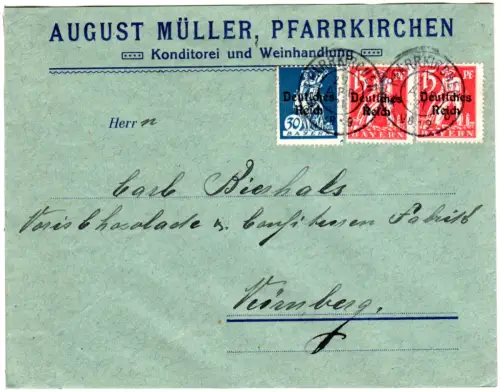 AUGUST MÜLLER, PFARRKIRCHEN
Konditorei und Weinhandlung
Deutsches Reich Deutsches Reich Deutsches Reich
30 15 PF 15 PF
BAYERN BAYERN BAYERN
PFARRKIRCHEN
Herrn
Carl Bierhals
Chocolade & Confitüren Fabrik
Nürnberg.